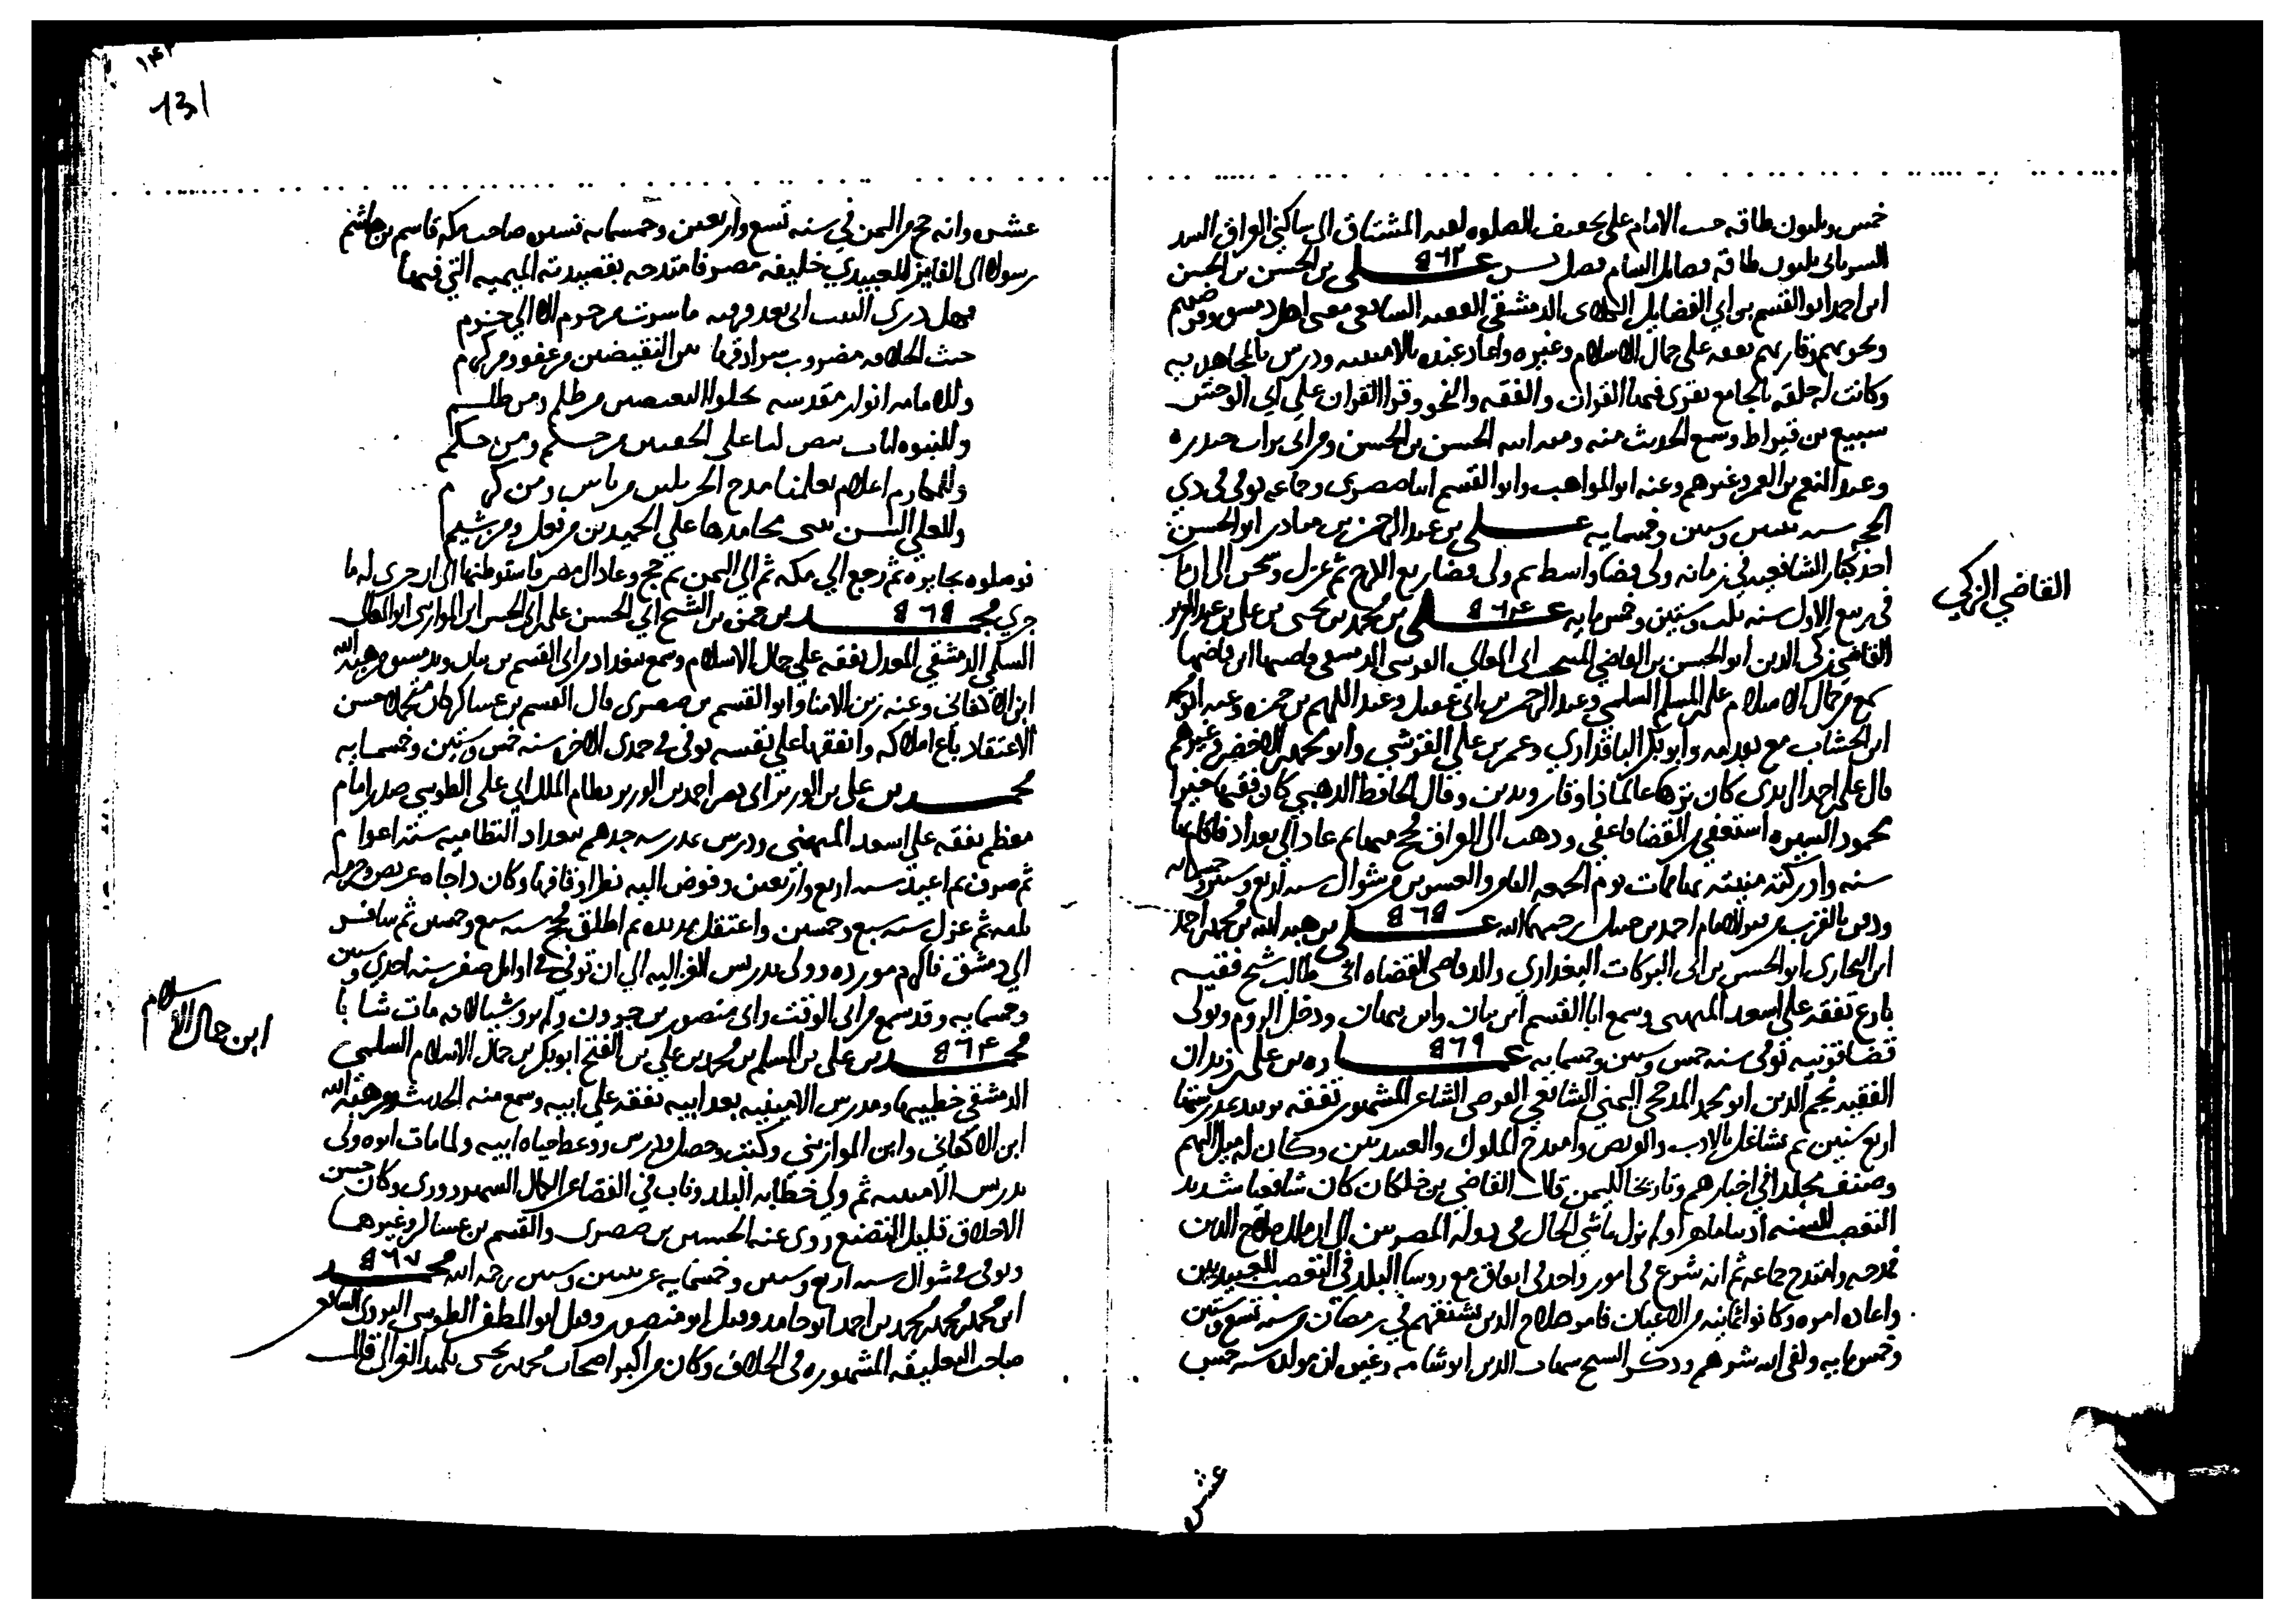 خمس وثلثون طاقه حسب الامام على بحفف الصلوه لعبد المشتاق الى ساكني العراق السد
السرىاى ثلثون طاقه فضائل الشام فصل ٥٦٢ علي بن الحسن بن الحسن
ابن احمد ابو القسم بن ابي الفضايل الكلابى الدمشقي الفقيه الشافعي مفتى اهل دمشق وفرضيهم
ونحويهم وقاريهم تفقه على جمال الاسلام وغيره واعاد عنده بالامينيه ودرس بالمجاهديه
وكانت له حلقه بالجامع يقرى فيها القران والفقه والنحو وقرا القران على ابي الوحش
سبيع بن قيراط وسمع الحديث منه ومن ابيه الحسن بن الحسن ومن ابى تراب حيدره
وعبد المنعم بن الغمر وغيرهم وعنه ابو المواهب وابو القسم ابنا صصرى وجماعه توفى في ذي
الحجه سنه ثنتين وستين وخمسمايه علي بن عبد الرحمن بن مبادر ابو الحسن
احد كبار الشافعيه في زمانه ولى قضا واسط ثم ولى قضا ربع الكرخ ثم عزل وسجن الى ان مات
فى ربيع الاول سنه ثلث وستين وخمسمايه ٥٦٤ علي بن محمد بن يحيى بن على بن عبد العزيز
القاضي زكي الدين ابو الحسن بن القاضي المنتجب ابى المعالي القرشى الدمشقى قاضيها ابن قاضيها
سمع من جمال الاسلام علي بن المسلم السلمي وعبد الرحمن بن ابي عقيل وعبد الكريم بن حمزه وعبد الله
ابن الخشاب مع تقدمه وابو بكر الباقداري وعمر بن علي القرشي وابو محمد بن الاخضر وغيرهم
قال على بن احمد الزيدى كان نزها عالما ذا وقار ودين وقال الحافظ الذهبي كان فقيها خيرا
محمود السيره استعفى من القضا فاعفي وذهب الى العراق فحج منها ثم عاد الى بغداد فاقام بها
سنه وادركته منيته بها مات يوم الجمعه الثامن والعشرين من شوال سنه اربع وستين وخمسمايه
ودفن بالقرب من قبر الامام احمد بن حنبل رحمهما الله ٥٦٥ علي بن هبه الله بن محمد بن احمد
ابن البخارى ابو الحسن بن ابى البركات البغدادي والد قاضى القضاه ابى طالب شيخ فقيه
بارع تفقه على اسعد الميهنى وسمع ابا القسم ابن بيان وابن نبهان ودخل الروم وتولى
قضا قونيه توفى سنه خمس وستين وخمسمايه ٥٦٩ عماره بن على بن زيدان
الفقيه نجم الدين ابو محمد المذحجي اليمني الشافعي الفرضى الشاعر المشهور تفقه بزبيد عدرستها
اربع سنين ثم تشاغل بالادب والقريض وامتدح الملوك والعبيديين وكان له ميل اليهم
وصنف مجلدا في اخبارهم وتاريخا لليمن قال القاضي بن خلكان كان شافعيا شديد
التعصب للسنه اديبا ماهرا ولم يزل ماشي الحال فى دوله المصريين الى ان ملك صلاح الدين
فمدحه وامتدح جماعه ثم انه شرع فى امور واخذ في اتفاق مع روسا البلد في التعصب للعبيديين
واعاده امره وكانوا ثمانيه من الاعيان فامر صلاح الدين بشنقهم في رمضان سنه تسع وستين
وخمسمايه وكفى الله شرهم وذكر الشيخ شهاب الدين ابو شامه وغيره ان مولده سنه خمس
القاضي الزكي
عشر
١٤٢
131
عشره وانه حج من اليمن في سنه تسع واربعين وخمسمايه فسيره صاحب مكه قاسم بن هاشم
رسولا الى الفايز العبيدي خليفه مصر فامتدحه بقصيدته الميميه التي فيها
فهل درى البيت انى بعد فرقته ما سرت من حرم الا الي حرم
حيث الخلافه مضروب سرادقها بين النقيضين من عفو ومن كرم
وللامامه انوار مقدسه تجلوا البغيضين من ظلم ومن ظلم
وللنبوه ايات تنص لنا على الخفيين من حكم ومن حكم
وللمكارم اعلام تعلمنا مدح الجزيلين من باس ومن كرم
وللعلى السن تثنى محامدها على الحميدين من فعل ومن شيم
فوصلوه بجايزه ثم رجع الي مكه ثم الى اليمن ثم حج وعاد الى مصر فاستوطنها الى ان جرى له ما
جري ٥٦٥ محمد بن حمزه بن الشيخ ابي الحسن على بن الحسن ابن الموازيني ابو المعالي
السلمي الدمشقي المعدل تفقه علي جمال الاسلام وسمع ببغداد من ابى القسم بن بيان وبدمشق من هبه الله
ابن الاكفاني وعنه زين الامنا وابو القسم بن صصرى قال القسم بن عساكر كان شيخا حسن
الاعتقاد باع املاكه وانفقها على نفسه توفى في جمدى الاخره سنه خمس وستين وخمسمايه
محمد بن على بن الوزير ابى نصر احمد بن الوزير نظام الملك ابي على الطوسي صدر امام
معظم تفقه على اسعد الميهنى ودرس بمدرسه جدهم ببغداد النظاميه ستة اعوام
ثم صرف ثم اعيد سنه اربع واربعين وفوض اليه نظر اوقافها وكان ذا جاه عريض وحرمه
تامه ثم عزل سنه سبع وخمسين واعتقل مديده ثم اطلق فحج سنه سبع وخمسين ثم سافر
الي دمشق فاكرم مورده وولى تدريس الغزاليه الى ان توفي في اوائل صفر سنه احدى وستين
وخمسمايه وقد سمع من ابى الوقت وابى منصور بن خيرون ولم يرو شيا لانه مات شابا
٥٦٤ محمد بن على بن المسلم بن محمد بن علي بن الفتح ابو بكر بن جمال الاسلام السلمى
الدمشقي خطيبها ومدرس الامينيه بعد ابيه تفقه علي ابيه وسمع منه الحديث ومن هبه الله
ابن الاكفاني وابن الموازيني وكتب وحصل ودرس ووعظ حياه ابيه ولما مات ابوه ولى
تدريس الامينيه ثم ولي خطابه البلد وناب في القضا عن الكمال الشهرزورى وكان حسن
الاخلاق قليل التصنع روى عنه الحسين بن صصرى والقسم بن عساكر وغيرهما
وتوفى في شوال سنه اربع وستين وخمسمايه عن ستين وستين رحمه الله ٥٦٧ محمد
ابن محمد بن محمد بن احمد ابو حامد وقيل ابو منصور وقيل ابو المظفر الطوسي البروى الشافعى
صاحب التعليقه المشهوره فى الخلاف وكان من اكبر اصحاب محمد بن يحيى تلميذ الغزالي قال
ابن جمال الاسلام